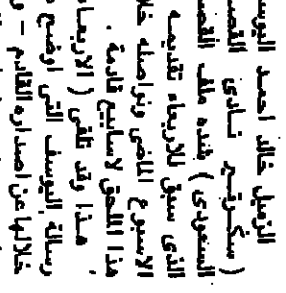 الزميل خالد احمد اليوسف
( سكرتير نادى القصة
السعودى ) هذه ملف القصة
الذى سبق للاربعاء تقديمه
الاسبوع الماضى ونواصله خلال
هذا اللحق لاسابيع قادمة .
هذا وقد تلقى ( الاربعاء
رسالة اليوسف التى اوضح
خلالها عن اصداره القادم - و